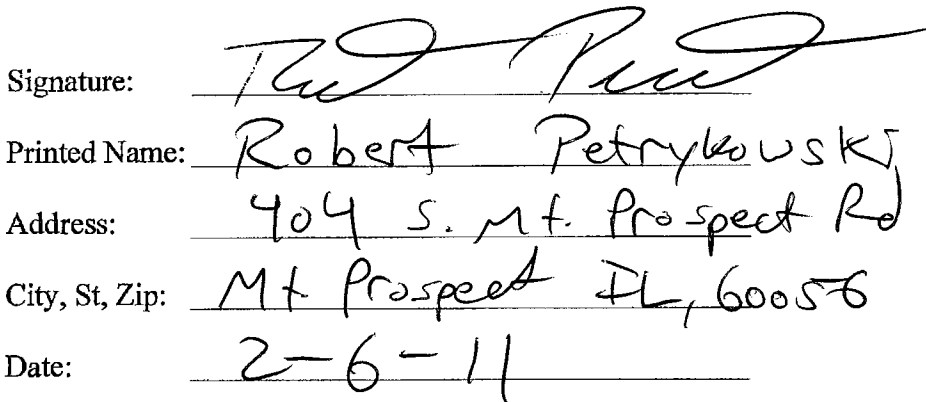 Signature:
Printed Name: Robert Petrykowski
Address: 404 S. Mt. Prospect Rd
City, St, Zip: Mt Prospect IL, 60056
Date: 2-6-11